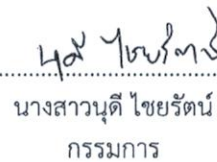 นางสาวนุดี ไชยรัตน์
กรรมการ